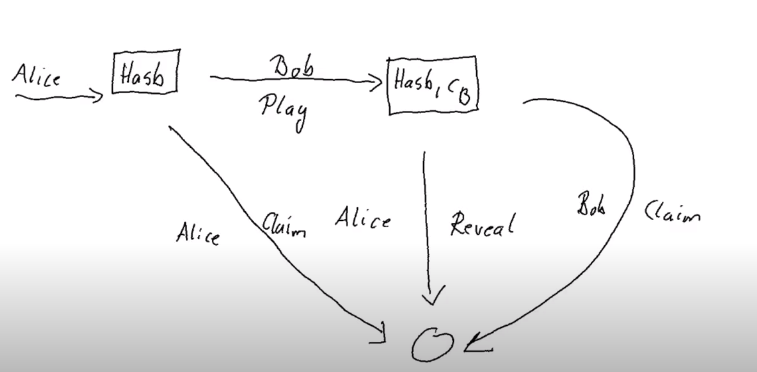 Alice
Hash
Bob
Play
Hash, CB
Alice Claim
Alice Reveal
Bob Claim